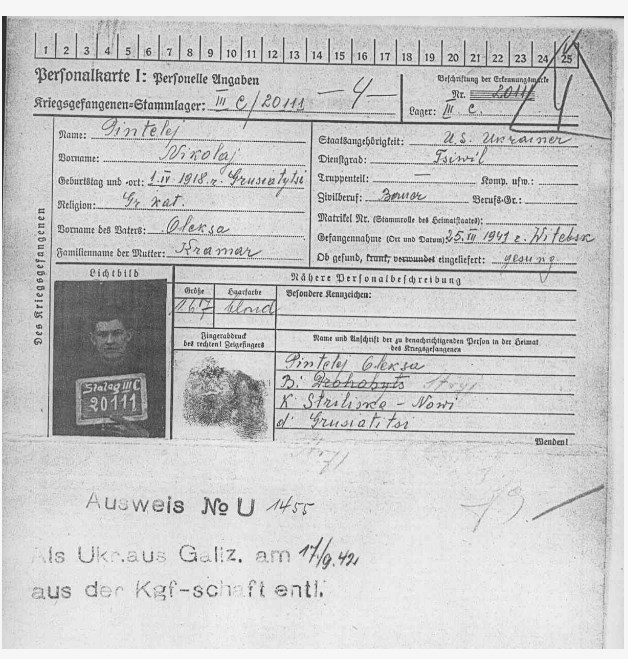 1 2 3 4 5 6 7 8 9 10 11 12 13 14 15 16 17 18 19 20 21 22 23 24 25
Personalkarte I: Personelle Angaben
Kriegsgefangenen-Stammlager: III C/20111 —4—
Beschriftung der Erkennungsmarke
Nr. 20111
Lager: III C.
4
Des Kriegsgefangenen
Name: Pintelej
Vorname: Nikolaj
Geburtstag und -ort: 1.IV 1918. r. Grusiatytsi
Religion: Gr. kat.
Vorname des Vaters: Oleksa
Familienname der Mutter: Kramar
Staatsangehörigkeit: U.S. Ukrainer
Dienstgrad: Tsiwil
Truppenteil: — Komp. usw.:
Zivilberuf: Bauer Berufs-Gr.:
Matrikel Nr. (Stammrolle des Heimatstaates):
Gefangennahme (Ort und Datum): 25.VII 1941 r. Witebsk
Ob gesund, krank, verwundet eingeliefert: gesung
Lichtbild
Stalag III C
20111
Nähere Personalbeschreibung
Größe Haarfarbe Besondere Kennzeichen:
1.67 blond
Fingerabdruck
des rechten! Zeigefingers
Name und Anschrift der zu benachrichtigenden Person in der Heimat
des Kriegsgefangenen
Pintelej Oleksa
B: Drohobuts Stryj
K Striliska - Nowi
d' Grusiatitsi
Wenden!
Ausweis № U 1455
Als Ukr. aus Galiz. am 17/9.42
aus der Kgf-schaft entl.